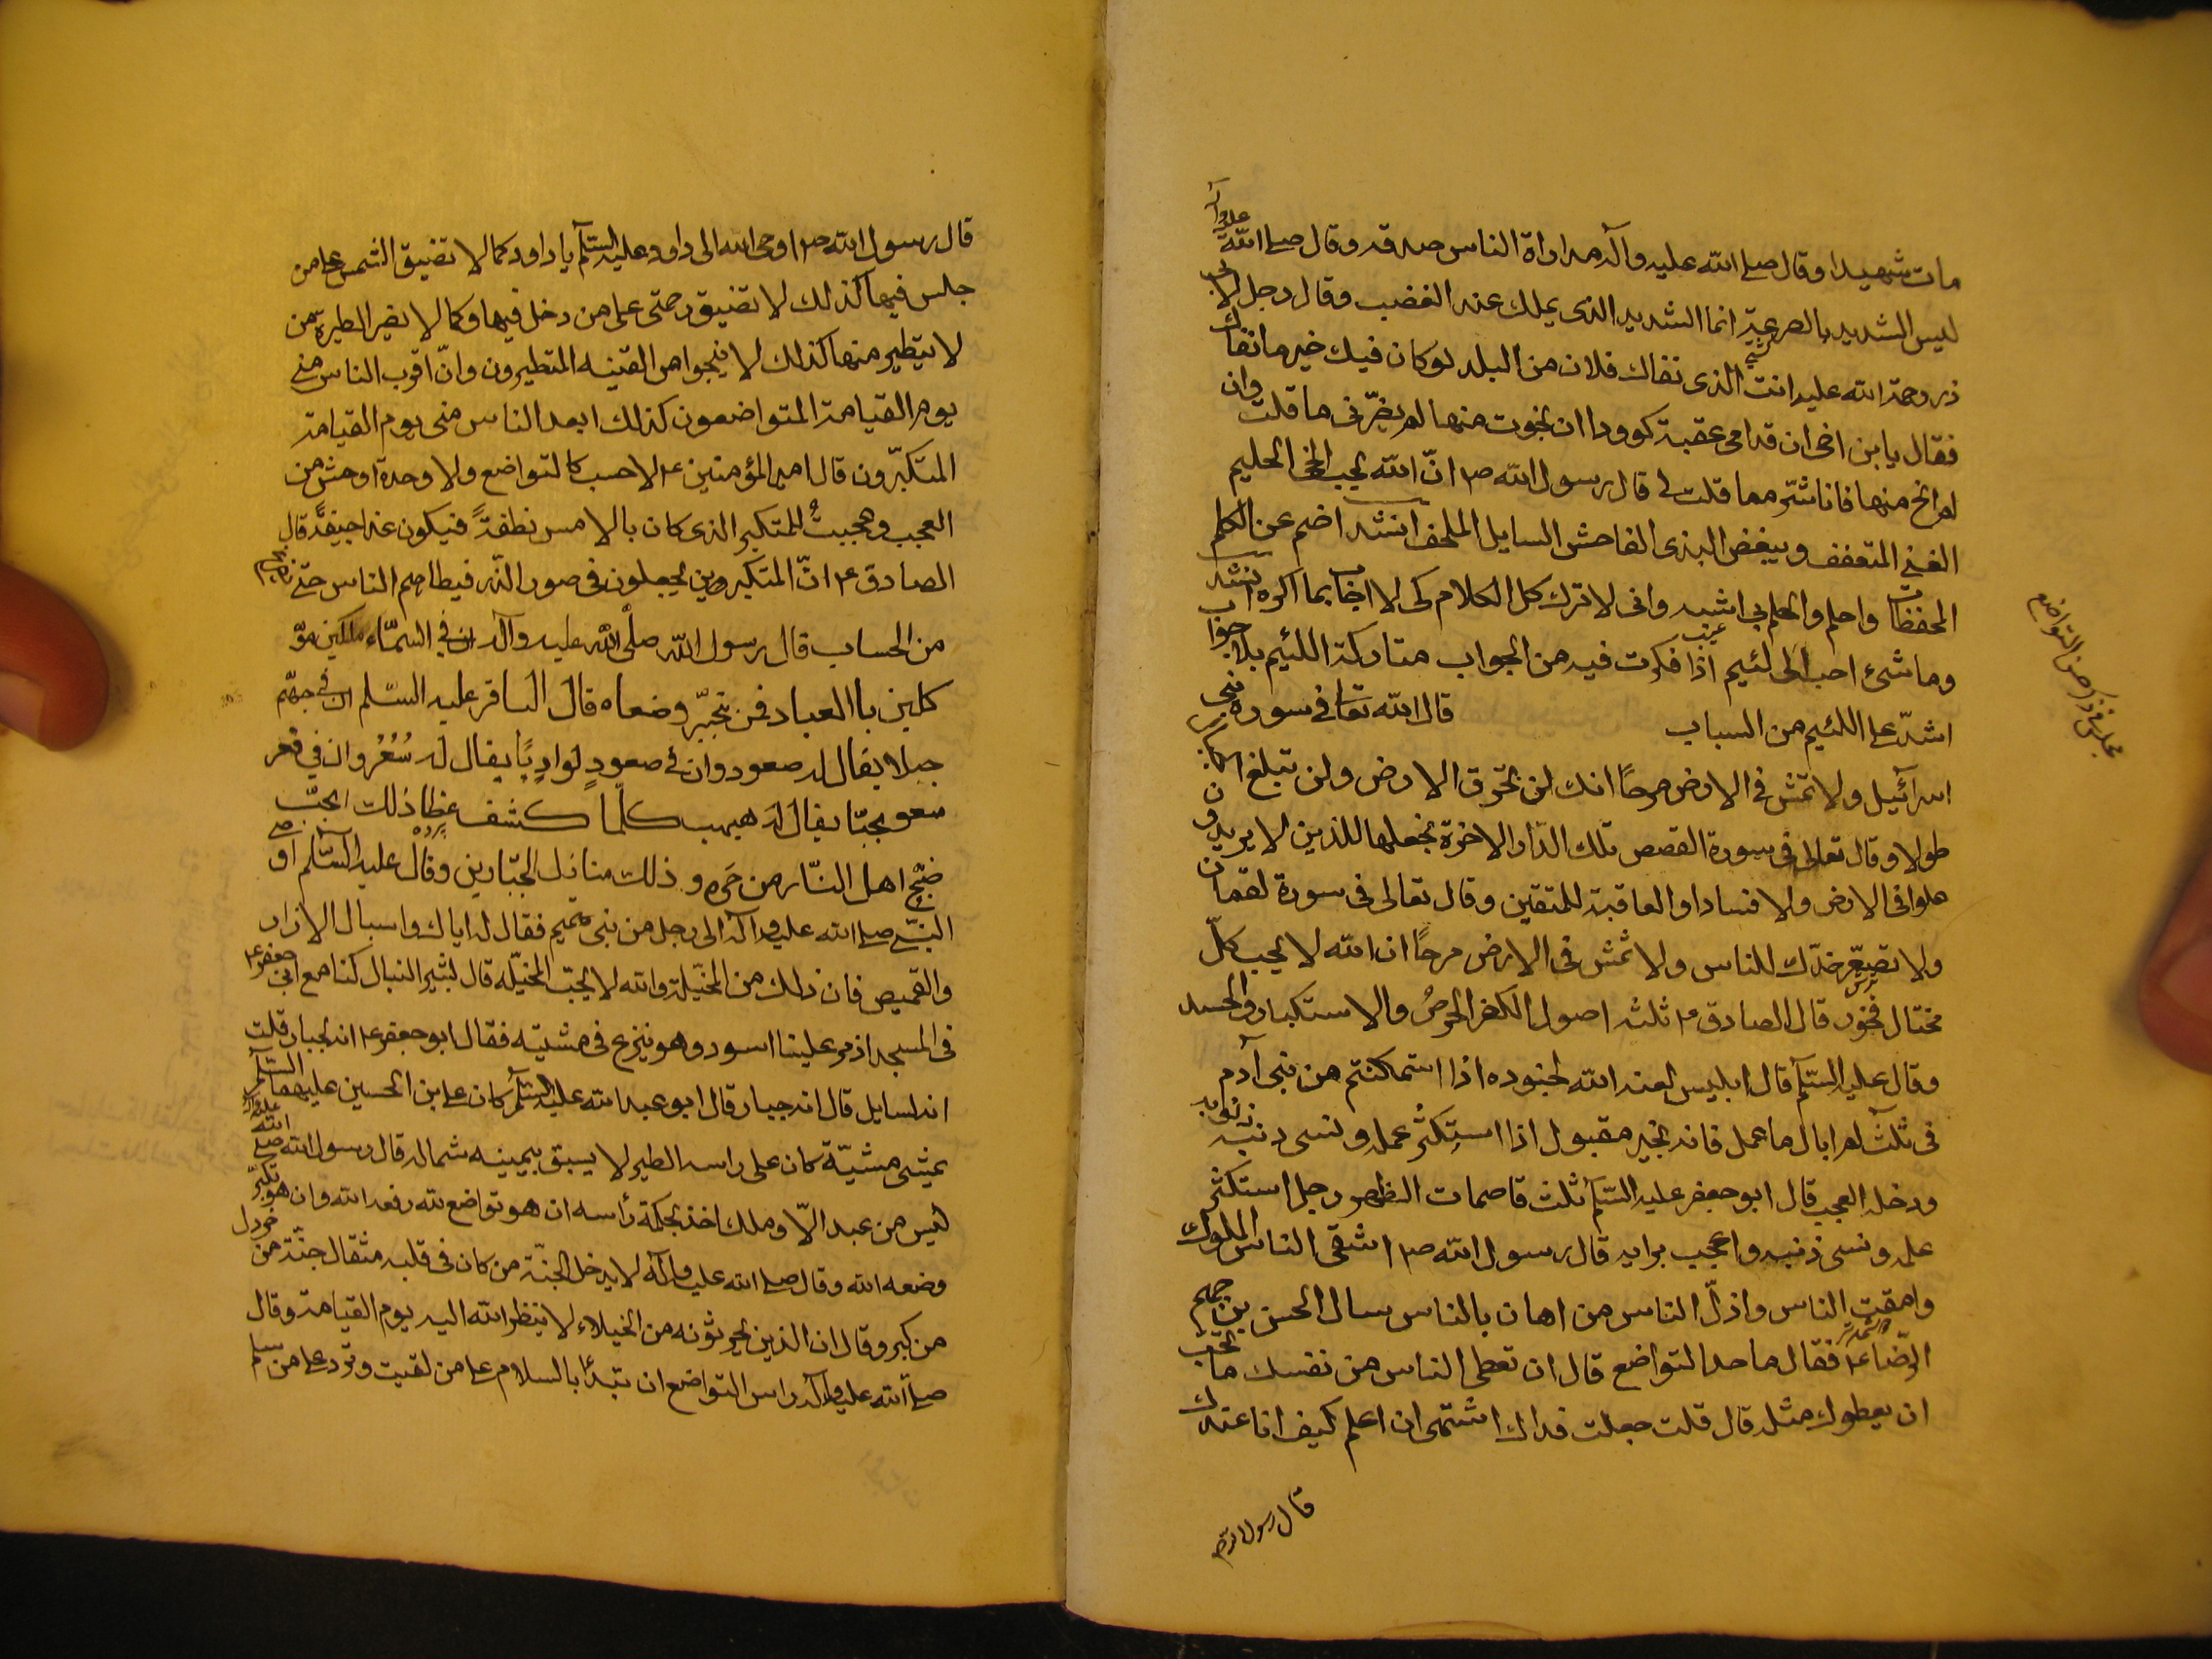 مات شهيدا وقال صلے الله عليه وآله مداراة الناس صدقه وقال صلے الله عليه وآله
ليس الشديد بالصرعة انما الشديد الذى يملك عند الغضب وقال رجل لابى
ذر رحمة الله عليه انت الذى نفاك فلان من البلد لو كان فيك خير ما نفاك
فقال يا بن اخى ان قدامى عقبة كوودا ان نجوت منها لم يضرّنى ما قلت وان
لم انج منها فانا شرّ مما قلت لى قال رسول الله ص انّ الله يحب الحليم
الغنى المتعفف ويبغض البذى الفاحش السايل الملحف انشد اضم عن الكلم
المحفظات واحلم والحلم بى اشبه وانى لاترك كل الكلام كى لا اجاب بما اكره انشد
وما شئ احب الى لئيم اذا فكرت فيه من الجواب متاركة اللئيم بلا جواب
اشدّ على اللئيم من السباب قال الله تعا فى سورة بنى
مجلس فى ذكر التواضع
اسرآئيل ولا تمش فى الارض مرحًا انك لن تخرق الارض ولن تبلغ الجبال
طولا وقال تعالى فى سورة القصص تلك الدّار الاخرة نجعلها للذين لا يريدون
علوا فى الارض ولا فسادا والعاقبة للمتقين وقال تعالى فى سورة لقمان
ولا تصعّر خدّك للناس ولا تمش فى الارض مرحًا ان الله لا يحب كلّ
مختال فخور قال الصادق ع ثلثه اصول الكفر الحرصُ والاستكبار والحسد
وقال عليه السّلم قال ابليس لعنه الله لجنوده اذا استمكنتم من بنى آدم
فى ثلث لم ابال ما عمل فانه غير مقبول اذا استكثر عمله ونسى ذنبه
ودخله العجب قال ابو جعفر عليه السّلم ثلث قاصمات الظهر رجل استكثر
عمله ونسى ذنبه واعجب برايه قال رسول الله ص اشقى الناس الملوك
وامقت الناس واذلّ الناس من اهان بالناس سال الحسن بن جهم
الرّضا ع فقال ما حد التواضع قال ان تعطى الناس من نفسك ما تحب
ان يعطوك مثله قال قلت جعلت فداك اشتهى ان اعلم كيف انا عندك
قال رسول الله ص
قال رسول الله ص اوحى الله الى داود عليه السّلم يا داود كما لا تضيق الشمس على من
جلس فيها كذلك لا تضيق رحمتى على من دخل فيها وكما لا تضر الطيرة من
لا يتطير منها كذلك لا ينجوا من الفتنه المتطيرون وانّ اقرب الناس منى
يوم القيامة المتواضعون كذلك ابعد الناس منى يوم القيامة
المتكبّرون قال امير المؤمنين ع لا حسب كالتواضع ولا وحدة اوحش من
العجب وعجبتُ للمتكبر الذى كان بالامس نطفةً فيكون غدا جيفةً قال
الصادق ع انّ المتكبروين يجعلون فى صور الذّر فيطاهم الناس حتى
من الحساب قال رسول الله صلّى الله عليه وآله ان فى السمّاء ملكين موّ
كلين با العباد فمن تجبّر وضعاه قال الباقر عليه السّلم ان فى جهنّم
جبلا يقال له صعود وان فى صعود لواديًا يقال له سُعُر وان فى قعر
سعر جبّا يقال له هبهب كلّما كشف غطا ذلك الجبّ
ضجّ اهل النّار من حَرّه و ذلك منازل الجبّارين وقال عليه السّلم اوصى
النبىّ صلے الله عليه وآله الى رجل من بنى تميم فقال له اياك واسبال الازار
والقميص فان ذلك من المخيّلة والله لا يحبّ المخيّله قال بشير النبال كنا مع ابى جعفر ع
فى المسجد اذ مر علينا اسود وهو ينزع فى مشيته فقال ابو جعفر ع انه لجبار قلت
انه لسايل قال انه جبار قال ابو عبد الله عليه السّلم كان على بن الحسين عليهما السّلم
يمشى مشيّة كان على راسه الطير لا يسبق بيمينه شماله قال رسول الله صلے الله عليه وآله
ليس من عبد الاّ وملك اخذ بحكمة رأسه ان هو تواضع لله رفعه الله وان هو تكبّر
وضعه الله وقال صلے الله عليه وآله لا يدخل الجنّة من كان فى قلبه مثقال حبّة من خردل
من كبر وقال ان الذين يجرون ثوبه من الخيلاء لا ينظر الله اليه يوم القيامة وقال
صلے الله عليه وآله راس التواضع ان تبدأ بالسلام على من لقيت وترد على من سلم